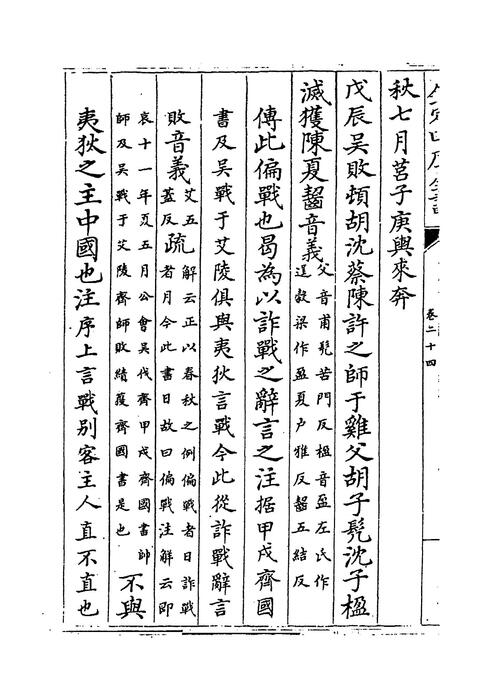 卷二十四
秋七月莒子庚輿來奔
戊辰吳敗頓胡沈蔡陳許之師于雞父胡子髡沈子楹
滅獲陳夏齧音義父音甫髡苦門反楹音盈左氏作
逞穀梁作盈夏户雅反齧五結反
傳此偏戰也曷為以詐戰之辭言之注据甲戌齊國
書及吳戰于艾陵俱與夷狄言戰今此從詐戰辭言
敗音義艾五
葢反疏解云正以春秋之例偏戰者日詐戰
者月今此書日故曰偏戰注解云即
哀十一年夏五月公會吳伐齊甲戌齊國書帥
師及吳戰于艾陵齊師敗績獲齊國書是也不與
夷狄之主中國也注序上言戰别客主人直不直也